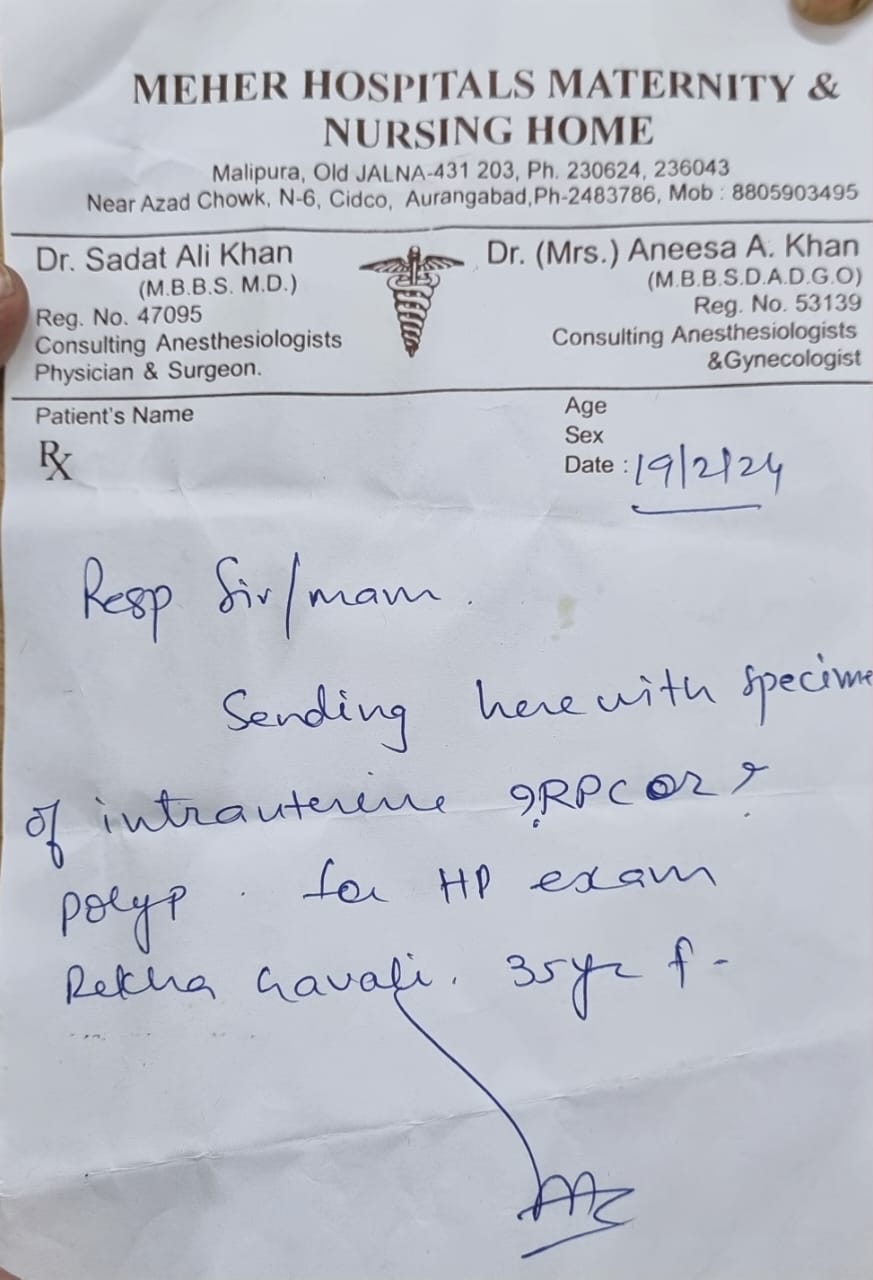 MEHER HOSPITALS MATERNITY &
NURSING HOME
Malipura, Old JALNA-431 203, Ph. 230624, 236043
Near Azad Chowk, N-6, Cidco, Aurangabad,Ph-2483786, Mob : 8805903495
Dr. Sadat Ali Khan
(M.B.B.S. M.D.)
Reg. No. 47095
Consulting Anesthesiologists
Physician & Surgeon.
Dr. (Mrs.) Aneesa A. Khan
(M.B.B.S.D.A.D.G.O)
Reg. No. 53139
Consulting Anesthesiologists
&Gynecologist
Patient's Name
Age
Sex
Rx
Date : 19/2/24
Resp Sir/mam.
Sending herewith specime
of intrauterine ?RPC or ?
polyp. for HP exam
Rekha Gavali. 35yr f-